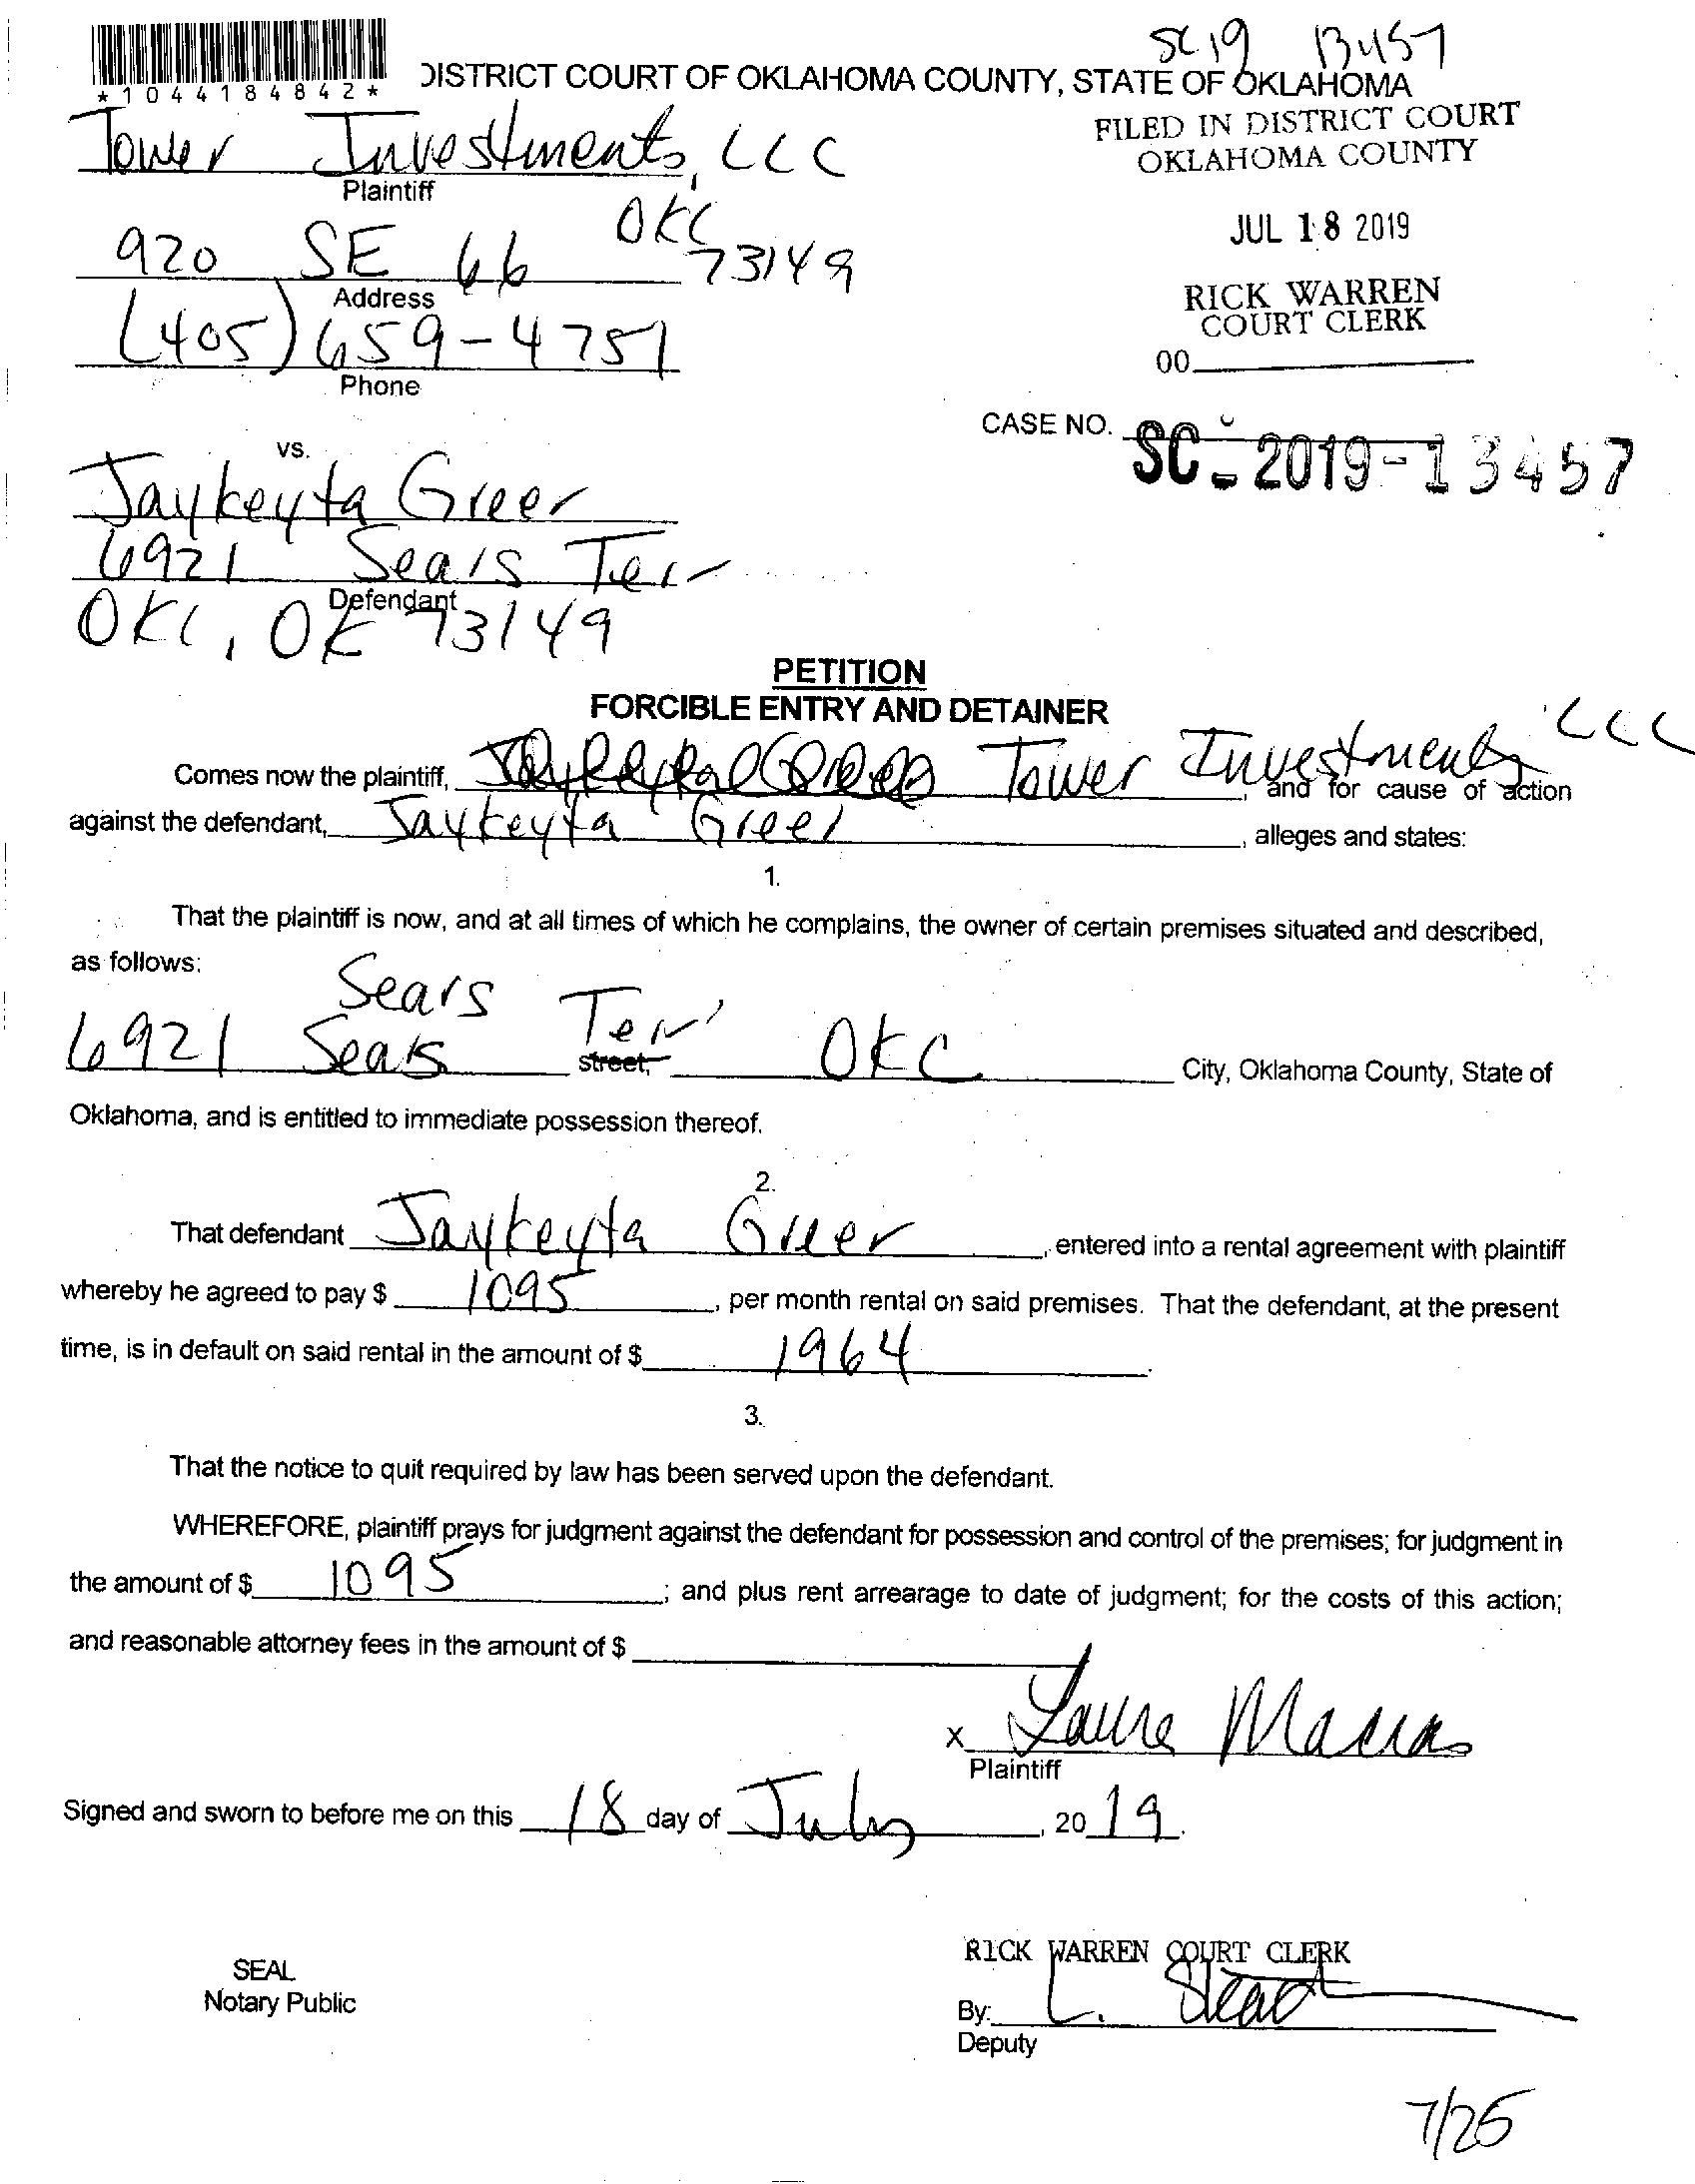 SC 19 13457
*1044184842*
DISTRICT COURT OF OKLAHOMA COUNTY, STATE OF OKLAHOMA
FILED IN DISTRICT COURT
OKLAHOMA COUNTY
Tower Investments, LLC
Plaintiff
JUL 18 2019
920 SE 66 OKC 73149
Address
RICK WARREN
COURT CLERK
(405) 659-4751
Phone
00
CASE NO. SC-2019-13457
vs.
Jaykeyta Greer
6921 Sears Ter
Defendant
OKC, OK 73149
PETITION
FORCIBLE ENTRY AND DETAINER
Comes now the plaintiff, Tower Investments LLC, and for cause of action
against the defendant, Jaykeyta Greer, alleges and states:
1.
That the plaintiff is now, and at all times of which he complains, the owner of certain premises situated and described,
as follows:
Sears
6921 Sears Terr street, OKC City, Oklahoma County, State of
Oklahoma, and is entitled to immediate possession thereof.
2.
That defendant Jaykeyta Greer, entered into a rental agreement with plaintiff
whereby he agreed to pay $ 1095, per month rental on said premises. That the defendant, at the present
time, is in default on said rental in the amount of $ 1964.
3.
That the notice to quit required by law has been served upon the defendant.
WHEREFORE, plaintiff prays for judgment against the defendant for possession and control of the premises; for judgment in
the amount of $ 1095; and plus rent arrearage to date of judgment; for the costs of this action;
and reasonable attorney fees in the amount of $
x Laura Macias
Plaintiff
Signed and sworn to before me on this 18 day of July, 2019.
SEAL
Notary Public
RICK WARREN COURT CLERK
By: L.
Deputy
7/25